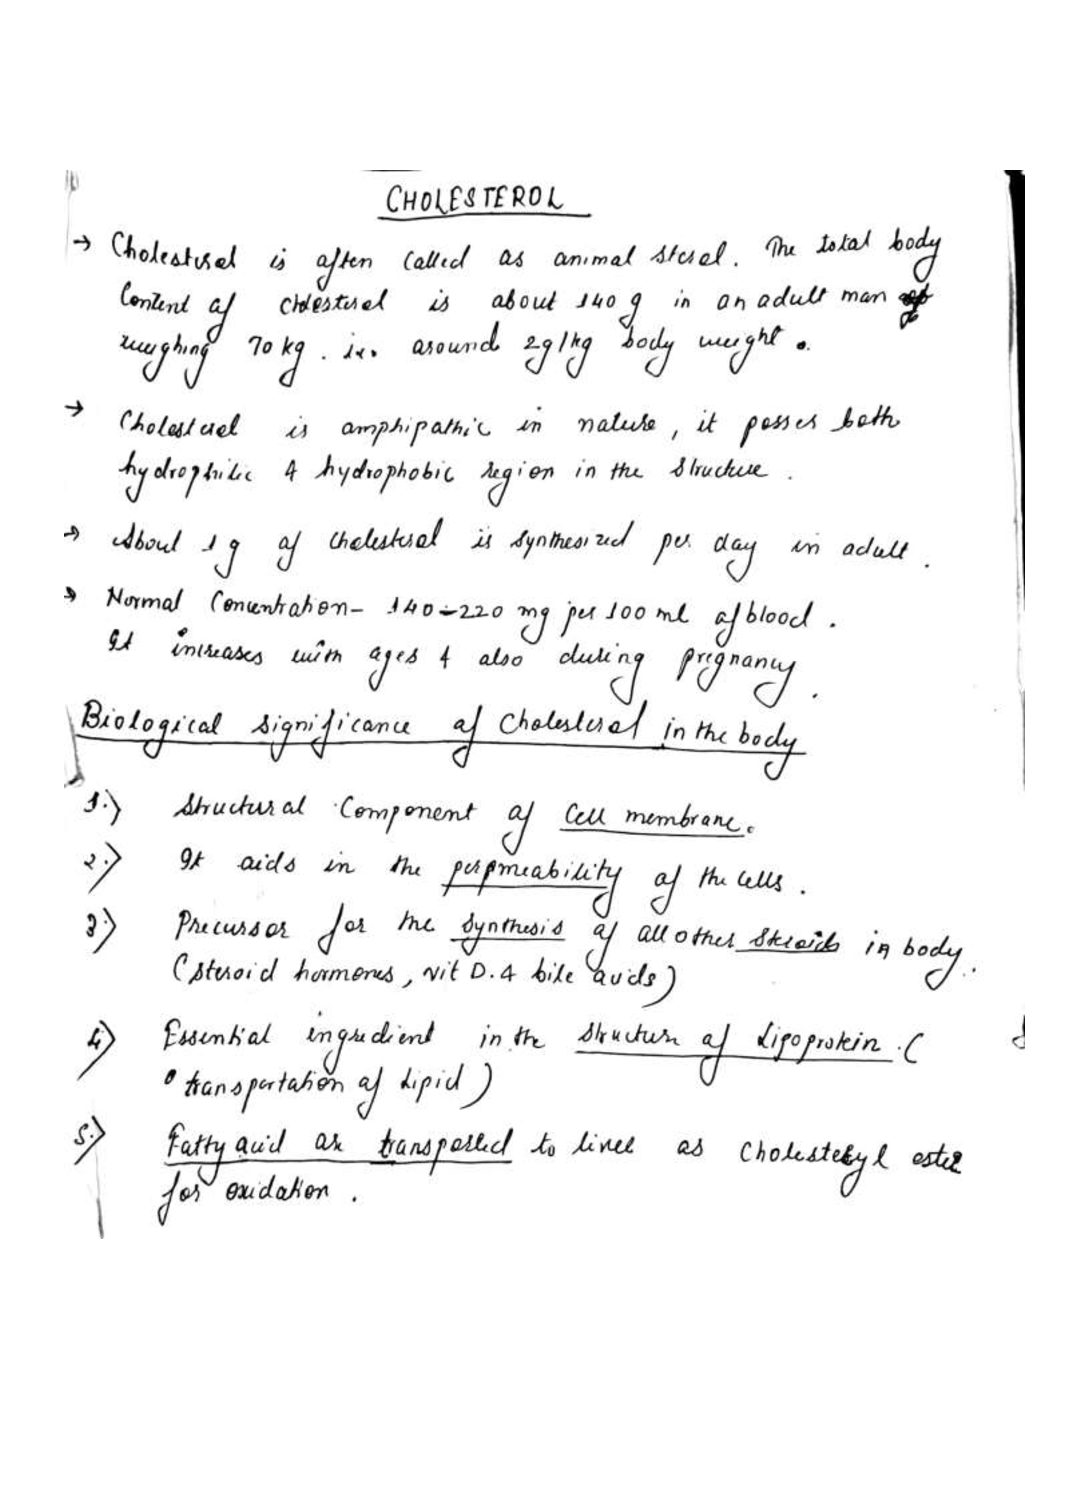 CHOLESTEROL
→ Cholesterol is often called as animal sterol. The total body
Content of cholesterol is about 140 g in an adult man
weighing 70 kg. i.e. around 2g/kg body weight.
→ Cholesterol is amphipathic in nature, it posses both
hydrophilic & hydrophobic region in the structure.
→ About 1 g of cholesterol is synthesized per day in adult.
→ Normal Concentration- 140-220 mg per 100 ml of blood.
It increases with ages & also during pregnancy.
Biological significance of Cholesterol in the body
1.) Structural Component of Cell membrane.
2.) It aids in the perpmeability of the cells.
3) Precursor for the synthesis of all other steroids in body.
(steroid hormones, vit D. & bile acids)
4) Essential ingredient in the structure of Lipoprotein. (
transportation of Lipid)
5.) Fatty acid are transported to liver as Cholesteryl ester
for oxidation.